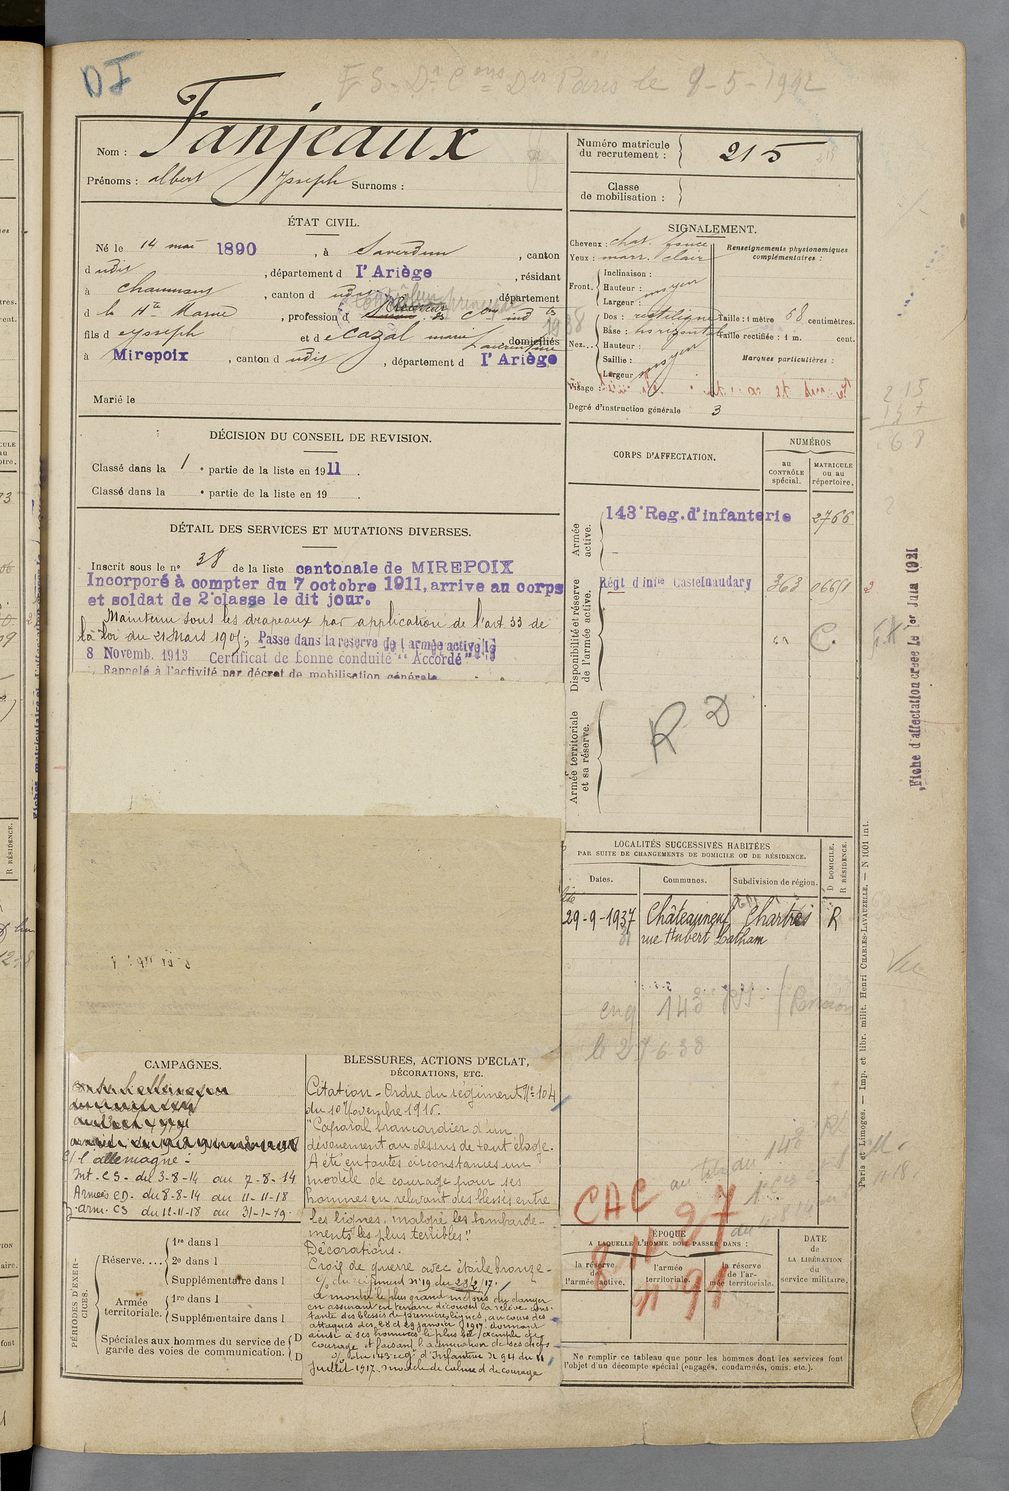 DI
Paris le 9-5-1912
Nom : Fanjeaux
Prénoms : albert Joseph Surnoms :
Numéro matricule du recrutement : 215
Classe de mobilisation :
ÉTAT CIVIL.
Né le 14 mai 1890, à Saverdun, canton
d udis, département d l'Ariège, résidant
à Chaumont, canton d udis, département
d la Hte Marne, profession d
fils d Joseph et de Cazal marie domiciliés
à Mirepoix, canton d udis, département d l'Ariège
Marié le
SIGNALEMENT.
Cheveux : chat. foncé
Yeux : marr. clair
Front. Inclinaison :
Hauteur : moyen
Largeur :
Nez... Dos : rectiligne
Base : horizontale
Hauteur :
Saillie : moyen
Largeur
Visage :
Renseignements physionomiques complémentaires :
Taille : 1 mètre 58 centimètres.
Taille rectifiée : 1 m. cent.
Marques particulières :
Degré d'instruction générale 3
DÉCISION DU CONSEIL DE REVISION.
Classé dans la 1e partie de la liste en 1911.
Classé dans la e partie de la liste en 19 .
DÉTAIL DES SERVICES ET MUTATIONS DIVERSES.
Inscrit sous le n° 38 de la liste cantonale de MIREPOIX
Incorporé à compter du 7 octobre 1911, arrive au corps
et soldat de 2e classe le dit jour.
Maintenu sous les drapeaux par application de l'art 33 de
la loi du 21 Mars 1905; Passe dans la reserve de l'armée active le
8 Novemb. 1913 Certificat de bonne conduite "Accordé"
Rappelé à l'activité par décret de mobilisation générale
CORPS D'AFFECTATION.
NUMÉROS
au CONTRÔLE spécial.
MATRICULE ou au répertoire.
Armée active.
143e Reg. d'infanterie 2766
Disponibilité et réserve de l'armée active.
Régt d'infie Castelnaudary 363
Armée territoriale et sa réserve.
R D
Fiche d'affectation créée le 1er Juin 1921
LOCALITÉS SUCCESSIVES HABITÉES
PAR SUITE DE CHANGEMENTS DE DOMICILE OU DE RÉSIDENCE.
Dates. Communes. Subdivision de région. D DOMICILE. R RÉSIDENCE.
29-9-1937 Châteauneuf Chartres R
rue Hubert Latham
le 27-6-38
Vu
CAMPAGNES.
C/ l'allemagne :
Int. CS. du 3-8-14 au 7-8-14
Armées CD. du 8-8-14 au 11-11-18
arm. CS du 12-11-18 au 31-7-19
BLESSURES, ACTIONS D'ECLAT,
DÉCORATIONS, ETC.
Citation - Ordre du régiment N° 104
du 10 Novembre 1916.
"Caporal brancardier d'un
dévouement au dessus de tout éloge.
A été en toutes circonstances un
modèle de courage pour ses
hommes en relevant des blessés entre
les lignes, malgré les bombarde-
ments les plus terribles".
Décorations.
Croix de guerre avec étoile bronze -
O/ du régiment n° 19 du 23/2/17.
a montré le plus grand mépris du danger
en assurant en terrain découvert la relève cons-
tante des blessés de première lignes, au cours des
attaques des 28 et 29 janvier 1917. donnant
ainsi à ses hommes le plus bel exemple de
courage et faisant l'admiration de ses chefs
O/ du 143e reg. d'Infanterie N° 94 du 11
Juillet 1917. modèle de calme et de courage
PÉRIODES D'EXERCICES.
Réserve.... 1re dans l
2e dans l
Supplémentaire dans l
Armée territoriale. 1re dans l
Supplémentaire dans l
Spéciales aux hommes du service de garde des voies de communication. D
D
CAC 27
ÉPOQUE
A LAQUELLE L'HOMME DOIT PASSER DANS :
la réserve de l'armée active.
l'armée territoriale.
la réserve de l'armée territoriale.
DATE de LA LIBÉRATION du service militaire.
Ne remplir ce tableau que pour les hommes dont les services font
l'objet d'un décompte spécial (engagés, condamnés, omis, etc.).
Paris et Limoges. — Imp. et libr. milit. Henri CHARLES-LAVAUZELLE. — N 1001 int.